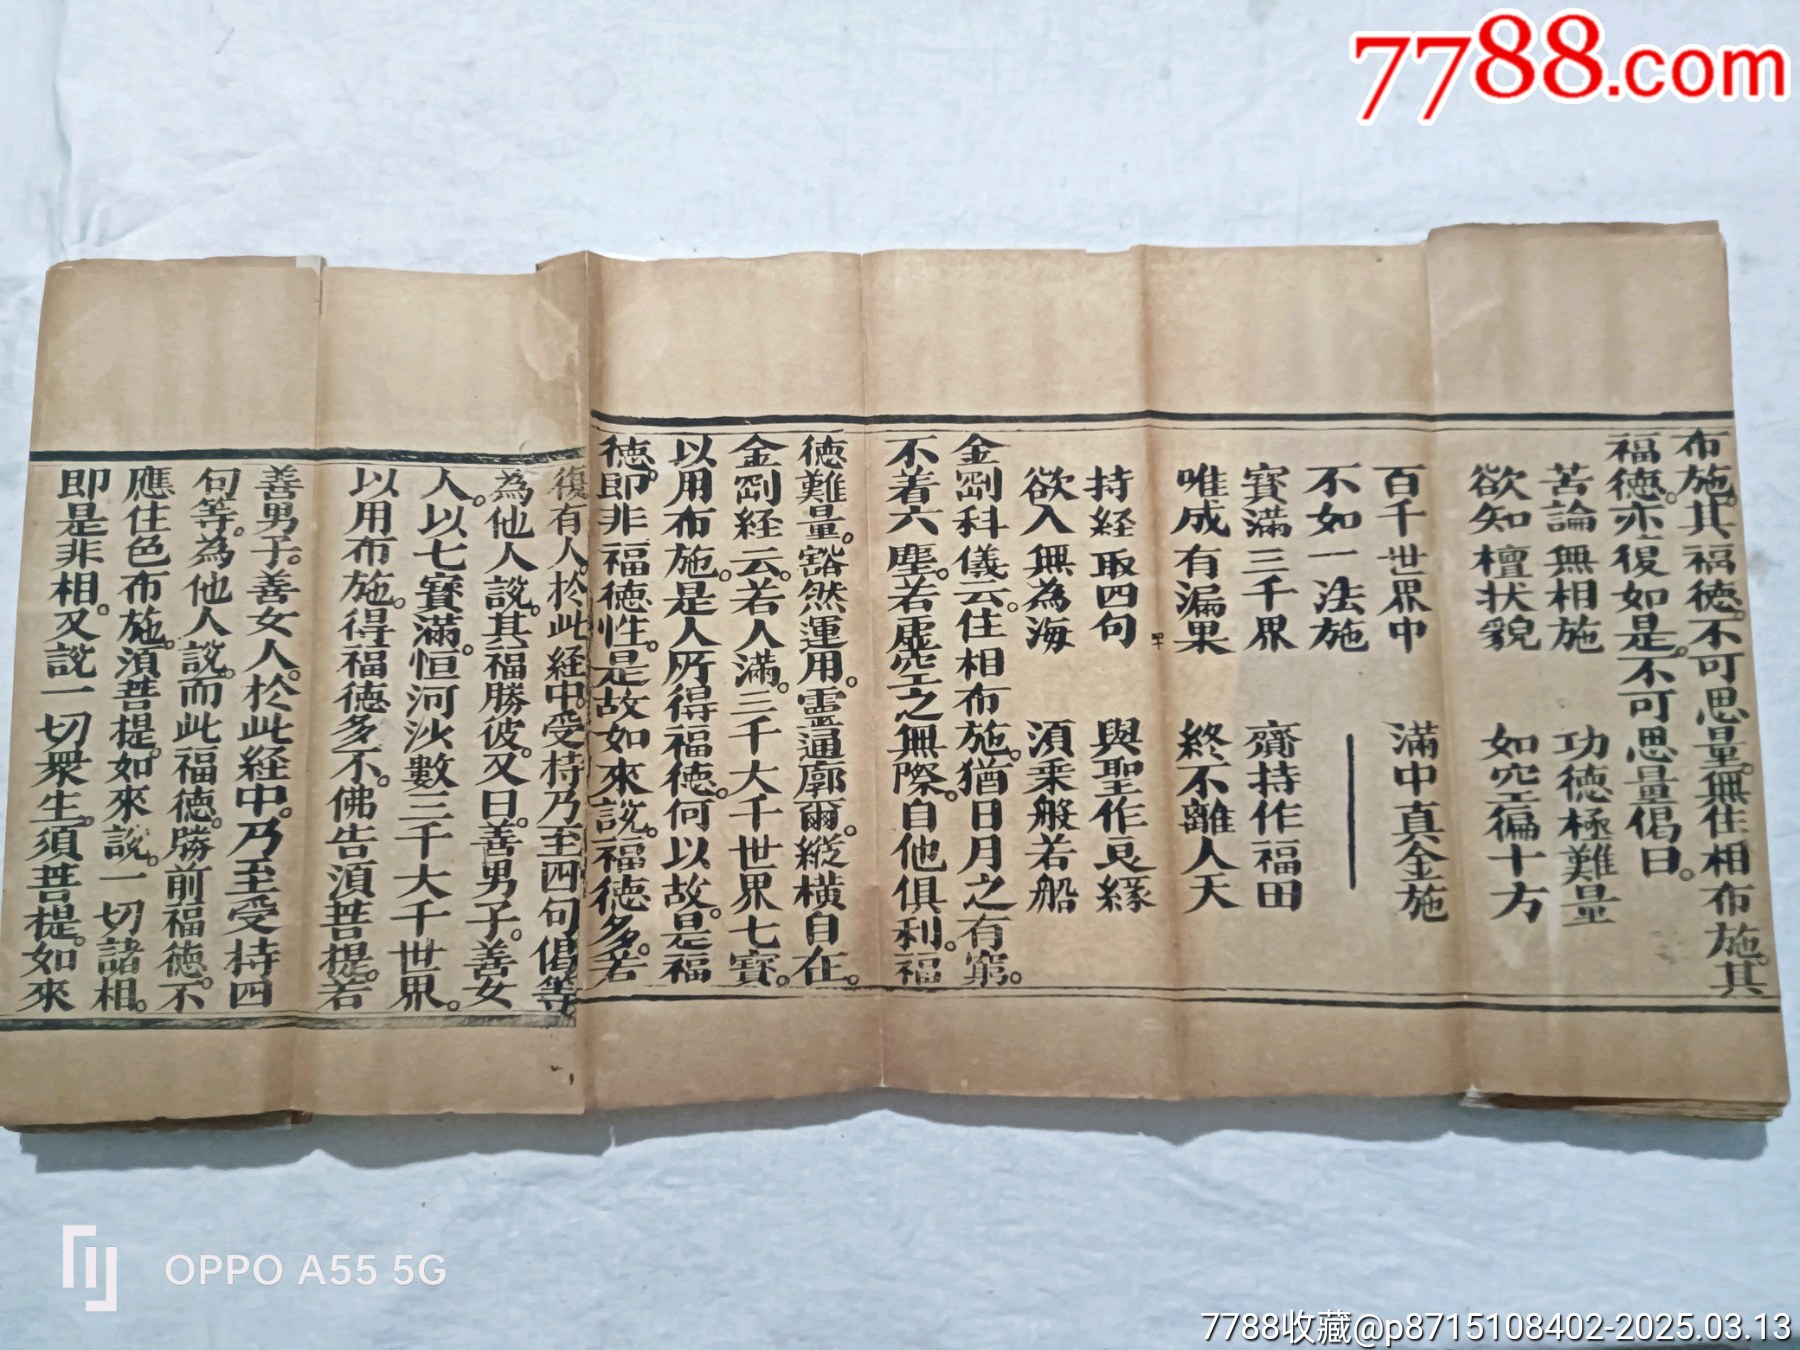 7788.com
布施。其福德。不可思量。無住相布施。其
福德。亦復如是。不可思量。偈曰。
苦論無相施 功德極難量
欲知檀狀貌 如空徧十方
百千世界中 滿中真金施
不如一法施
寶滿三千界 齋持作福田
唯成有漏果 終不離人天
持經取四句 與聖作良緣
欲入無為海 湏乗般若船
金剛科儀云。住相布施。猶日月之有窮。
不着六塵。若虛空之無際。自他俱利。福
德難量。豁然運用。靈通廓爾。縱橫自在。
金剛経云。若人滿。三千大千世界七寳。
以用布施。是人所得福德。何以故。是福
德。即非福德性。是故如來說。福德多。若
復有人。於此経中。受持乃至四句偈等
為他人說。其福勝彼。又曰。善男子。善女
人。以七寳滿。恒河沙數三千大千世界。
以用布施。得福德多不。佛告湏菩提。若
善男子。善女人。於此経中。乃至受持四
句等。為他人說。而此福德。勝前福德。不
應住色布施。湏菩提。如來說。一切諸相。
即是非相。又說一切衆生。須菩提。如來
OPPO A55 5G
7788收藏@p8715108402-2025.03.13